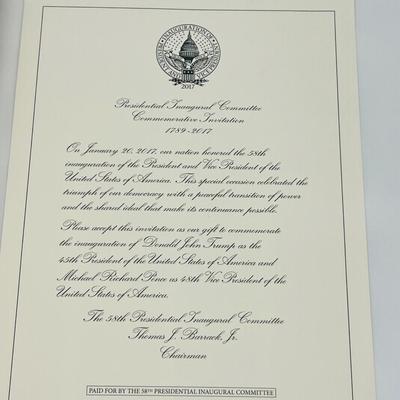 INAUGURATION OF
PRESIDENT AND VICE PRESIDENT
2017
Presidential Inaugural Committee
Commemorative Invitation
1789-2017
On January 20, 2017, our nation honored the 58th
inauguration of the President and Vice President of the
United States of America. This special occasion celebrated the
triumph of our democracy with a peaceful transition of power
and the shared ideal that make its continuance possible.
Please accept this invitation as our gift to commemorate
the inauguration of Donald John Trump as the
45th President of the United States of America and
Michael Richard Pence as 48th Vice President of the
United States of America.
The 58th Presidential Inaugural Committee
Thomas J. Barrack, Jr.
Chairman
PAID FOR BY THE 58TH PRESIDENTIAL INAUGURAL COMMITTEE